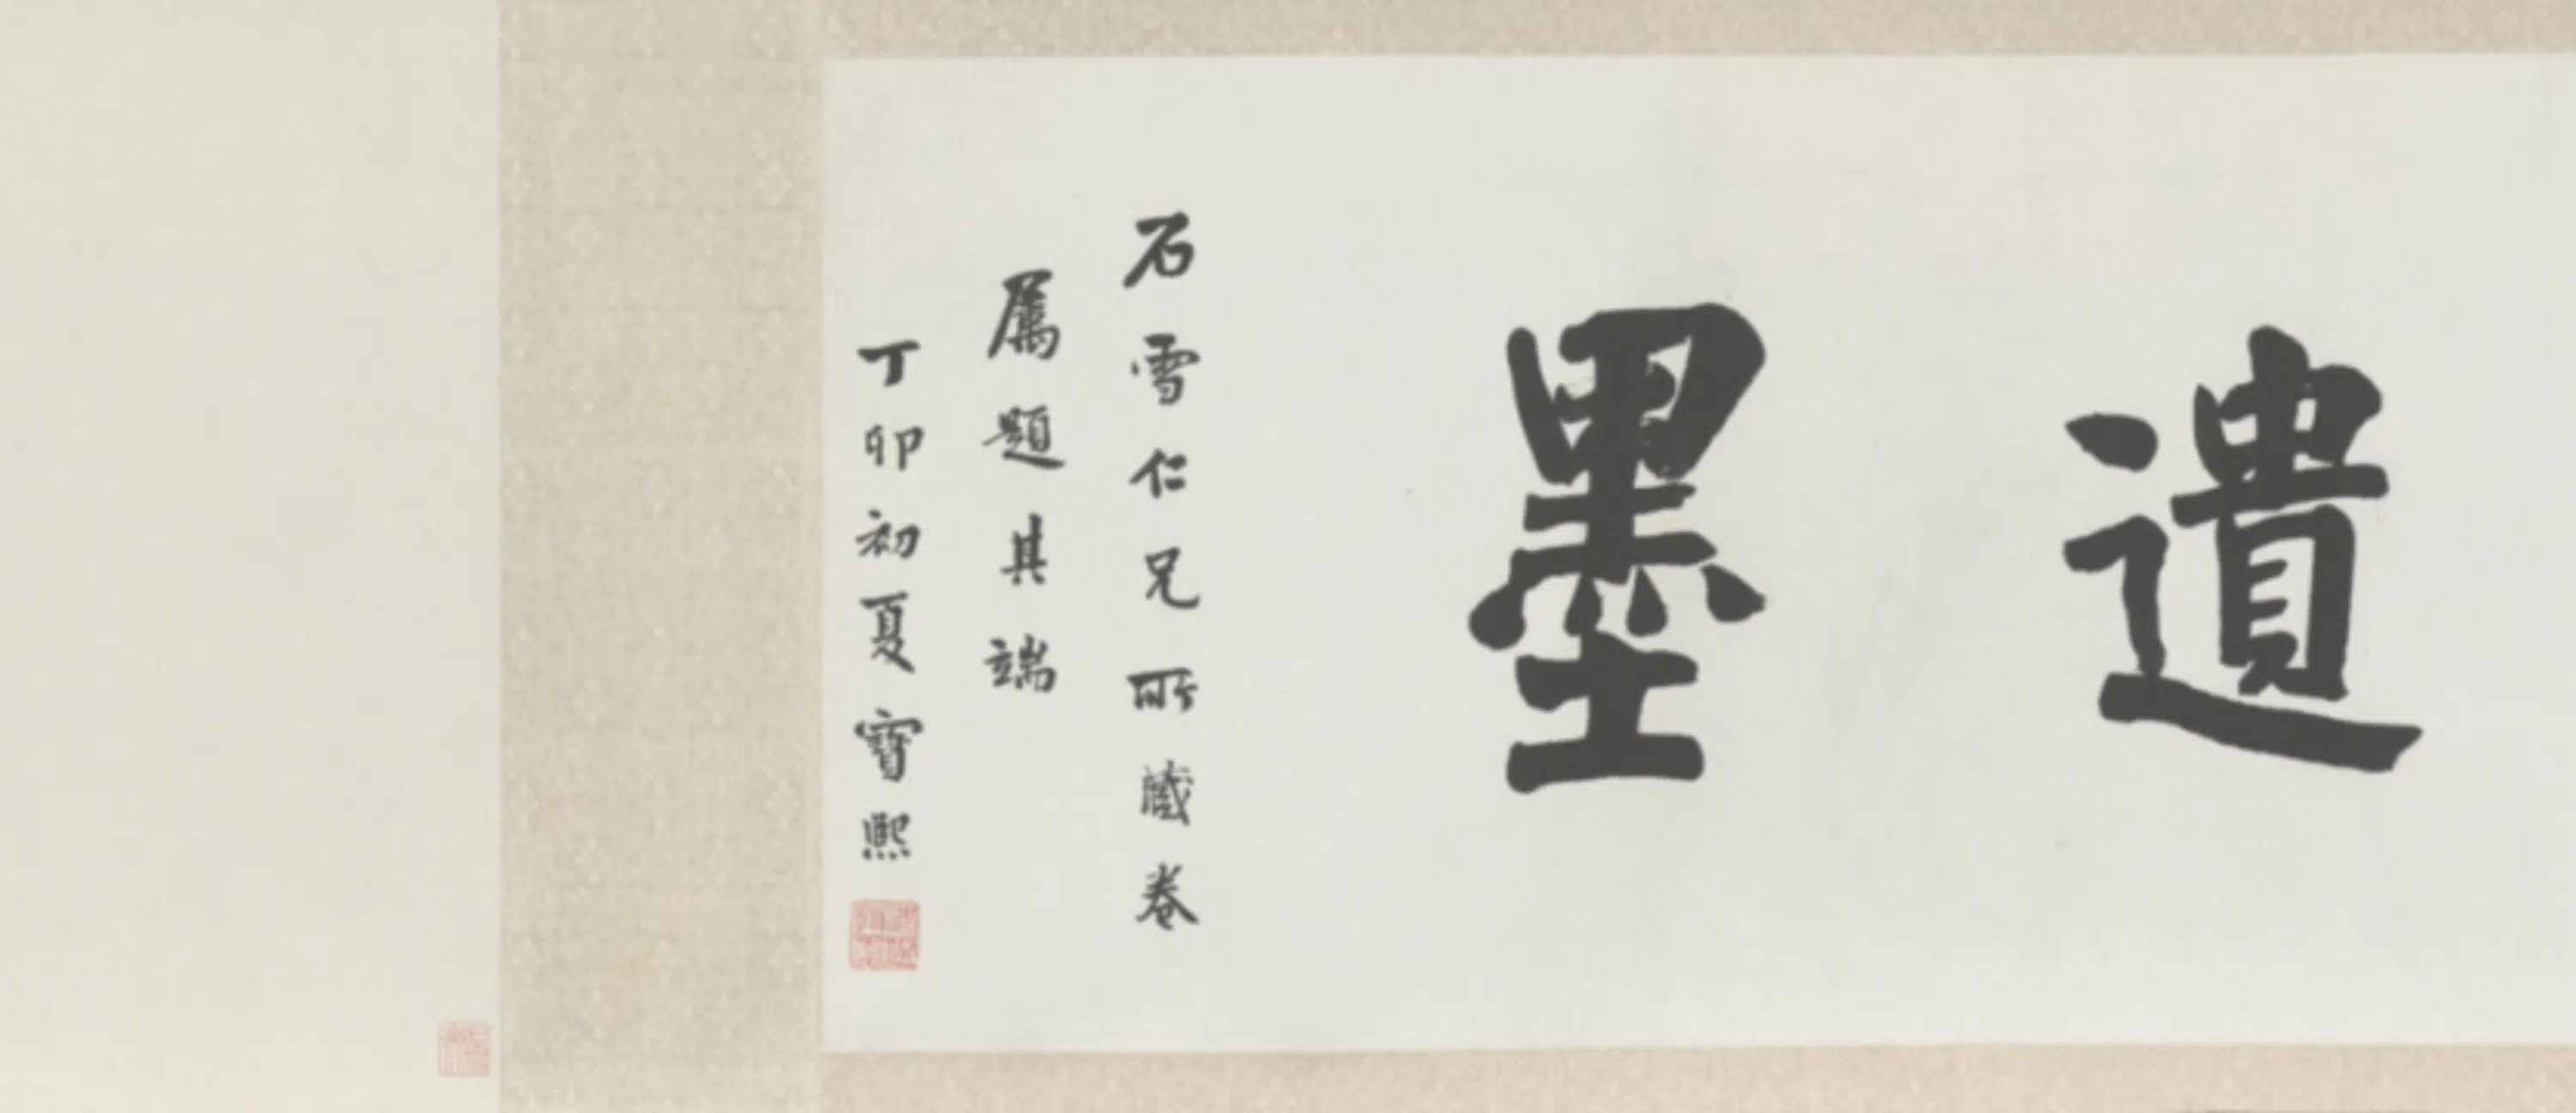 遺墨
石雪仁兄所藏卷
屬題其端
丁卯初夏寶熙